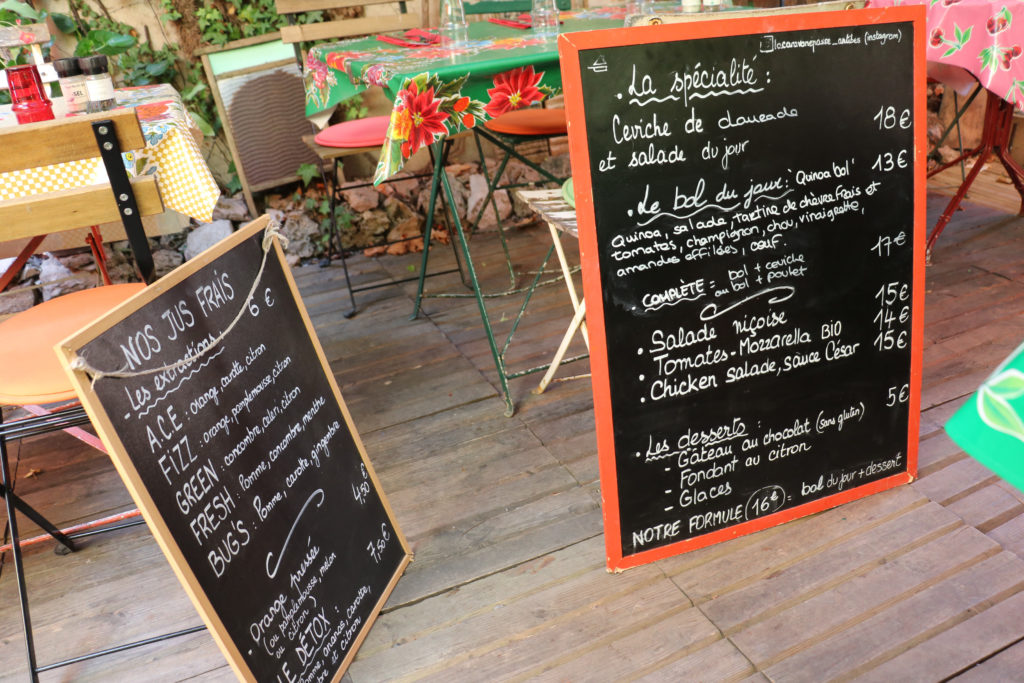 NOS JUS FRAIS
- Les extractions : 6 €
A.C.E : orange, carotte, citron
FIZZ : orange, pamplemousse, citron
GREEN : concombre, céleri, citron
FRESH : Pomme, concombre, menthe
BUG'S : Pomme, carotte, gingembre
- Orange pressée 4,50 €
(ou pamplemousse, melon
citron)
LE DÉTOX : 7,50 €
ananas, carotte,
et citron
lacaravanejaire_antibes (instagram)
• La spécialité :
Ceviche de daurade 18 €
et salade du jour
• Le bol du jour : 'Quinoa bol' 13 €
Quinoa, salade, tartine de chèvre frais et
tomates, champignon, chou, vinaigrette,
amandes effilées, oeuf.
COMPLÈTE = bol + ceviche 17 €
ou bol + poulet
• Salade niçoise 15 €
• Tomates - Mozzarella BIO 14 €
• Chicken salade, sauce César 15 €
• Les desserts : 5 €
- Gâteau au chocolat (sans gluten)
- Fondant au citron
- Glaces
NOTRE FORMULE (16 €) = bol du jour + dessert
SEL